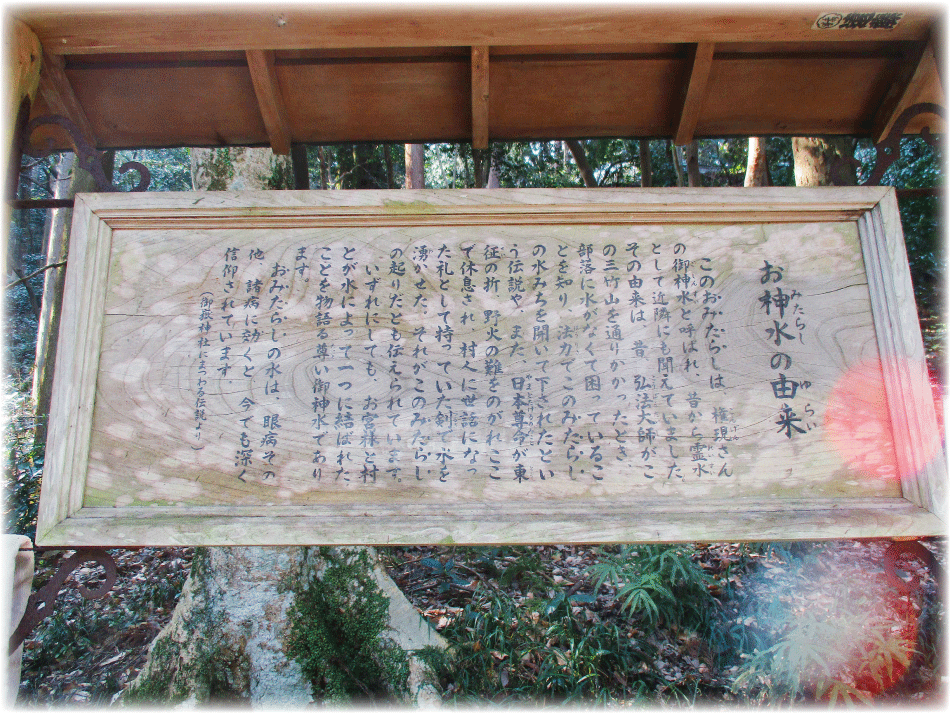 お神水の由来
みたらし
ゆらい
このおみたらしは、権現さん
の御神水と呼ばれ、昔から霊水
として近隣にも聞えていました。
その由来は、昔、弘法大師がこ
の三竹山を通りかかったとき、
部落に水がなくて困っているこ
とを知り、法力でこのみたらし
の水みちを開いて下されたとい
う伝説や、また、日本尊命が東
征の折、野火の難をのがれここ
で休息され、村人に世話になっ
た礼として持っていた剣で水を
湧かせた、それがこのみたらし
の起りだとも伝えられています。
いずれにしても、お宮様と村
とが水によって一つに結ばれた
ことを物語る尊い御神水であり
ます。
おみたらしの水は、眼病その
他、諸病に効くと、今でも深く
信仰されています。
（御嶽神社にまつわる伝説より）